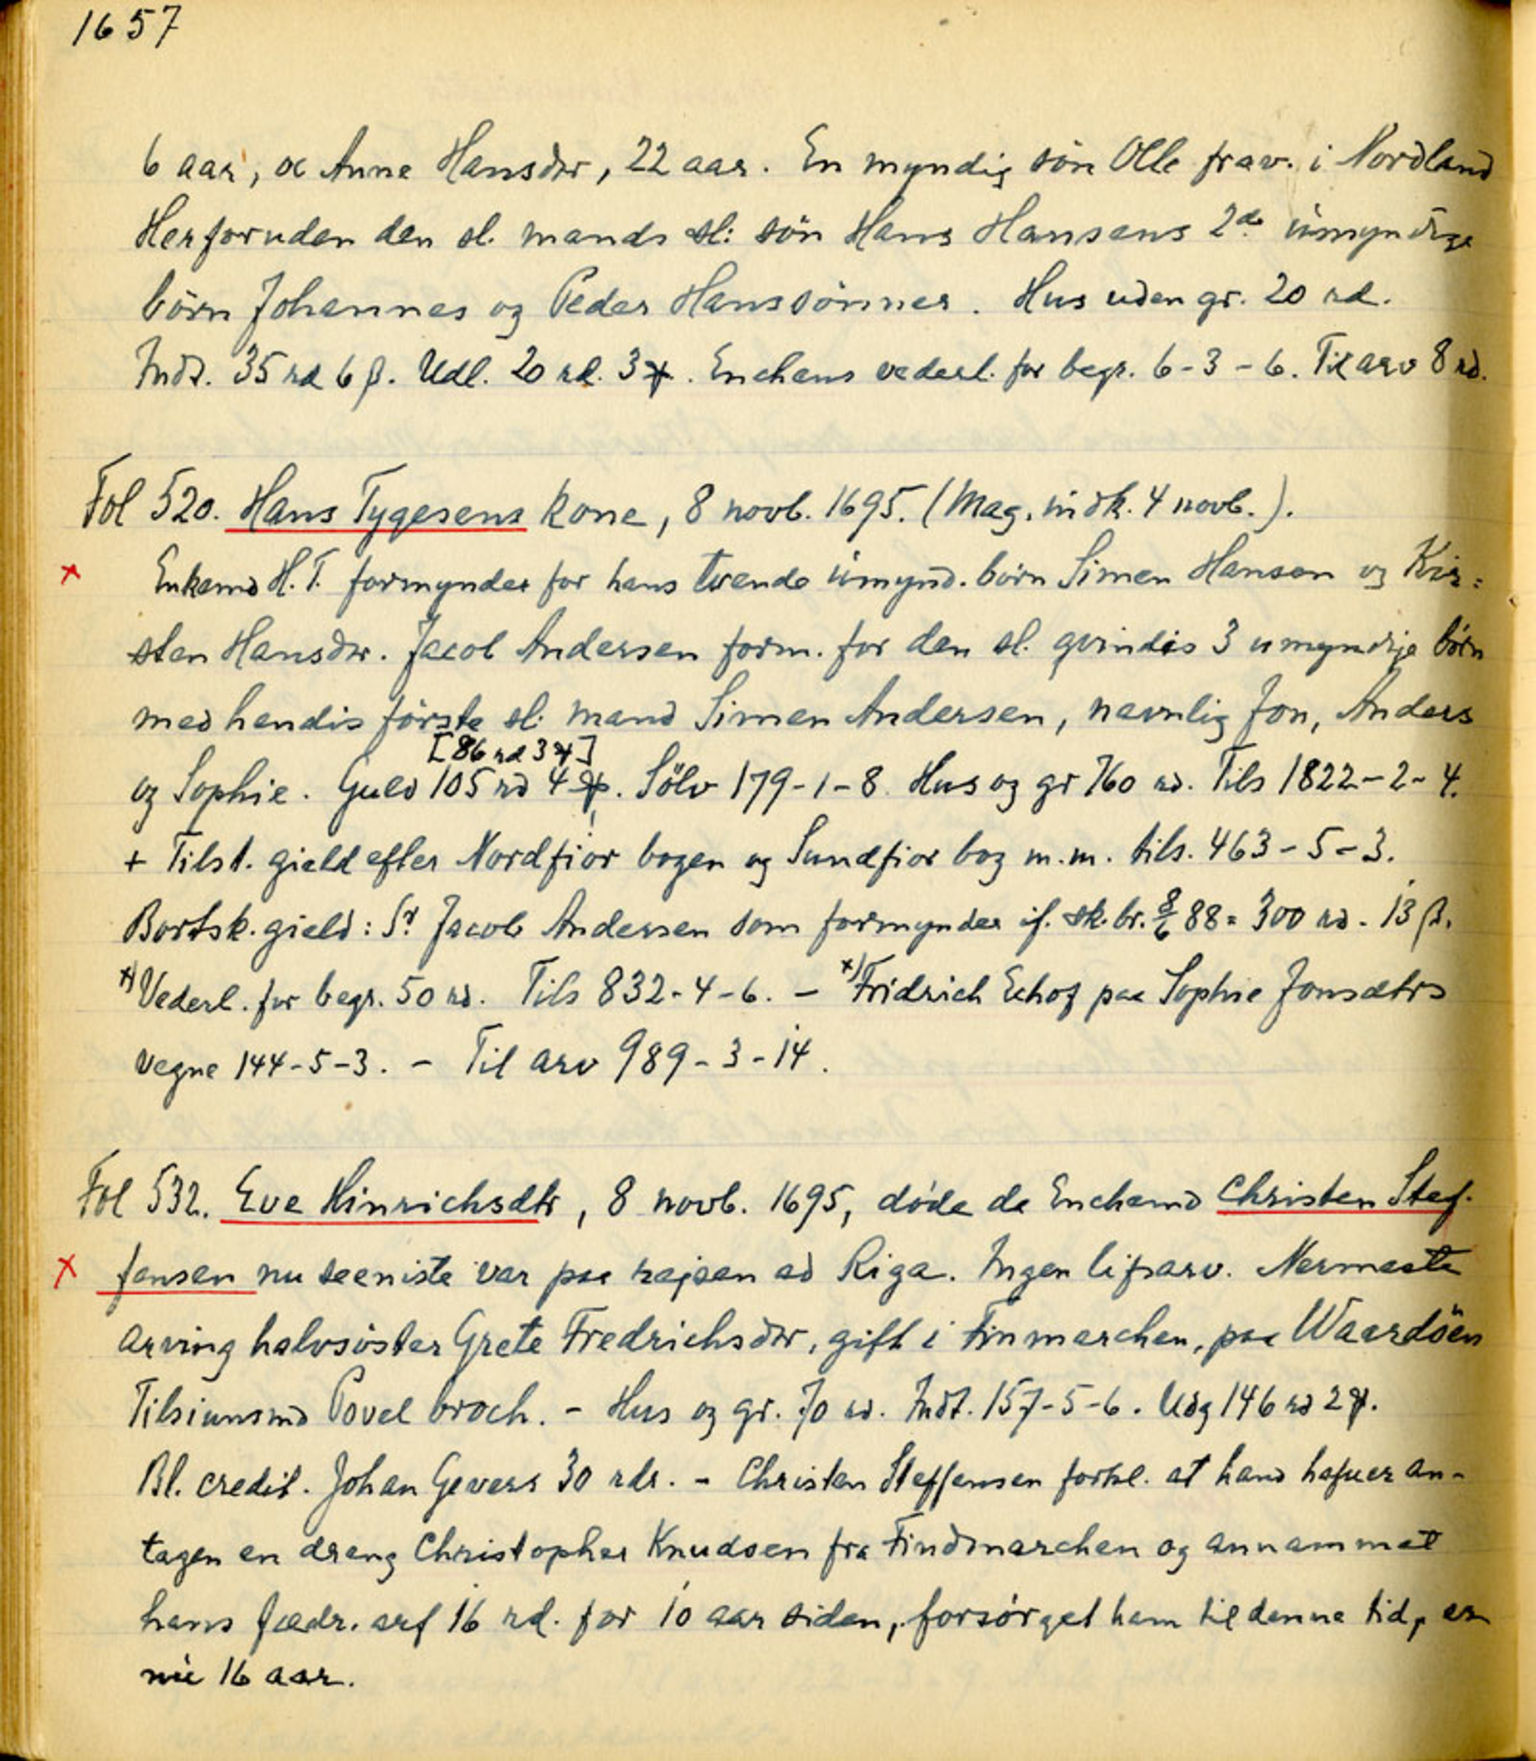 1657
6 aar, oc Anne Hansdtr, 22 aar. En myndig sön Olle frav. i Nordland
Herforuden den sl. mands sl: sön Hans Hansens 2de ùmyndige
börn Johannes og Peder Hanssönner. Hus uden gr. 20 rd.
Indt. 35 rd 6 β. Udl. 20 rd. 3 ⨎. Enchens vederl. for begr. 6-3-6. Til arv 8 rd.
Fol 520. Hans Tygesens kone, 8 novb. 1695. (Mag. indk. 4 novb.).
x Enkemd H. T. formynder for hans tvende ùmynd. börn Simen Hansen og Kir=
sten Hansdtr. Jacob Andersen form. for den sl. qvindis 3 umyndige börn
med hendis förste sl: mand Simen Andersen, navnlig Jon, Anders
[86 rd 3 ⨎]
og Sophie. Guld 105 rd 4 ⨎. Sölv 179-1-8. Hus og gr 760 rd. Tils 1822-2-4.
+ Tilst. gield efter Nordfior bogen og Sundfior bog m.m. tils. 463-5-3.
Bortsk. gield: Sr Jacob Andersen som formynder if. sk. br. 8/6 88 = 300 rd. 13 β.
x) Vederl. for begr. 50 rd. Tils 832-4-6. - x) Fridrich Echof paa Sophie Jonsdtrs
vegne 144-5-3. - Til arv 989-3-14.
Fol 532. Eve Hinrichsdtr, 8 novb. 1695, döde da Enchemd Christen Stef-
x fensen nu seeniste var paa rejsen ad Riga. Ingen lifsarv. Nermeste
arving halvsöster Grete Fredrichsdtr, gift i Finmarchen, paa Waardöen
Tilsiunsmd Povel broch. - Hus og gr. 70 rd. Indt. 157-5-6. Udg 146 rd 2 ⨎.
Bl. credit. Johan Gevers 30 rdr. - Christen Steffensen forkl. at hand hafuer an-
tagen en dreng Christopher Knudsen fra Findmarchen og annammet
hans fædr. arf 16 rd. for 10 aar siden, forsörget ham til denne tid, er
nù 16 aar.